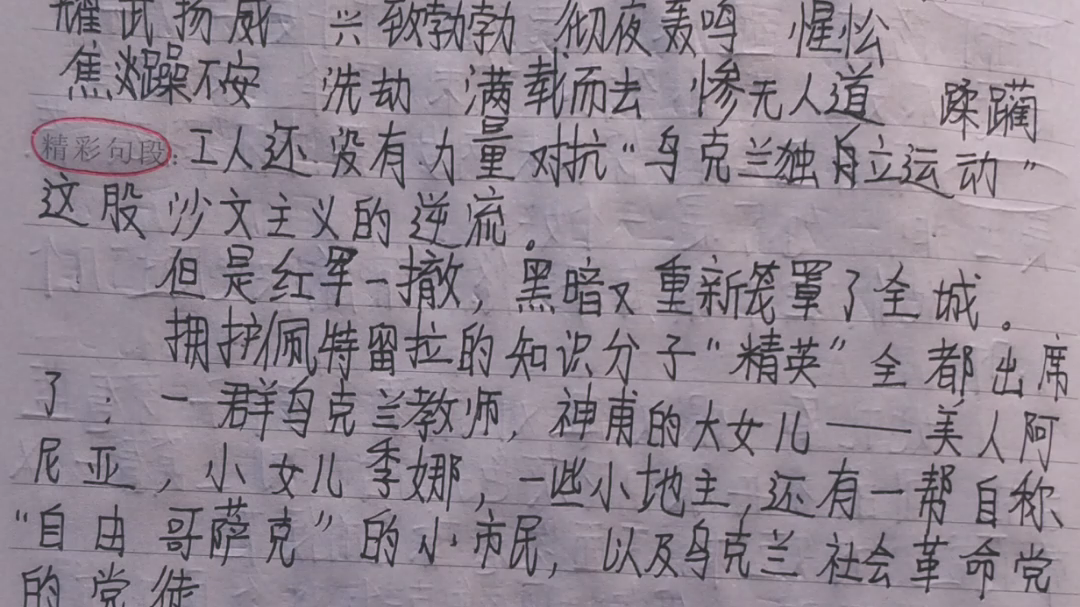 耀武扬威 兴致勃勃 彻夜轰鸣 惺忪
焦躁不安 洗劫 满载而去 惨无人道 蹂躏
精彩句段:工人还没有力量对抗“乌克兰独自立运动”
这股沙文主义的逆流。
但是红军一撤,黑暗又重新笼罩了全城。
拥护佩特留拉的知识分子“精英”全都出席
了:一群乌克兰教师,神甫的大女儿——美人阿
尼亚,小女儿季娜,一些小地主,还有一帮自称
“自由哥萨克”的小市民,以及乌克兰社会革命党
的党徒